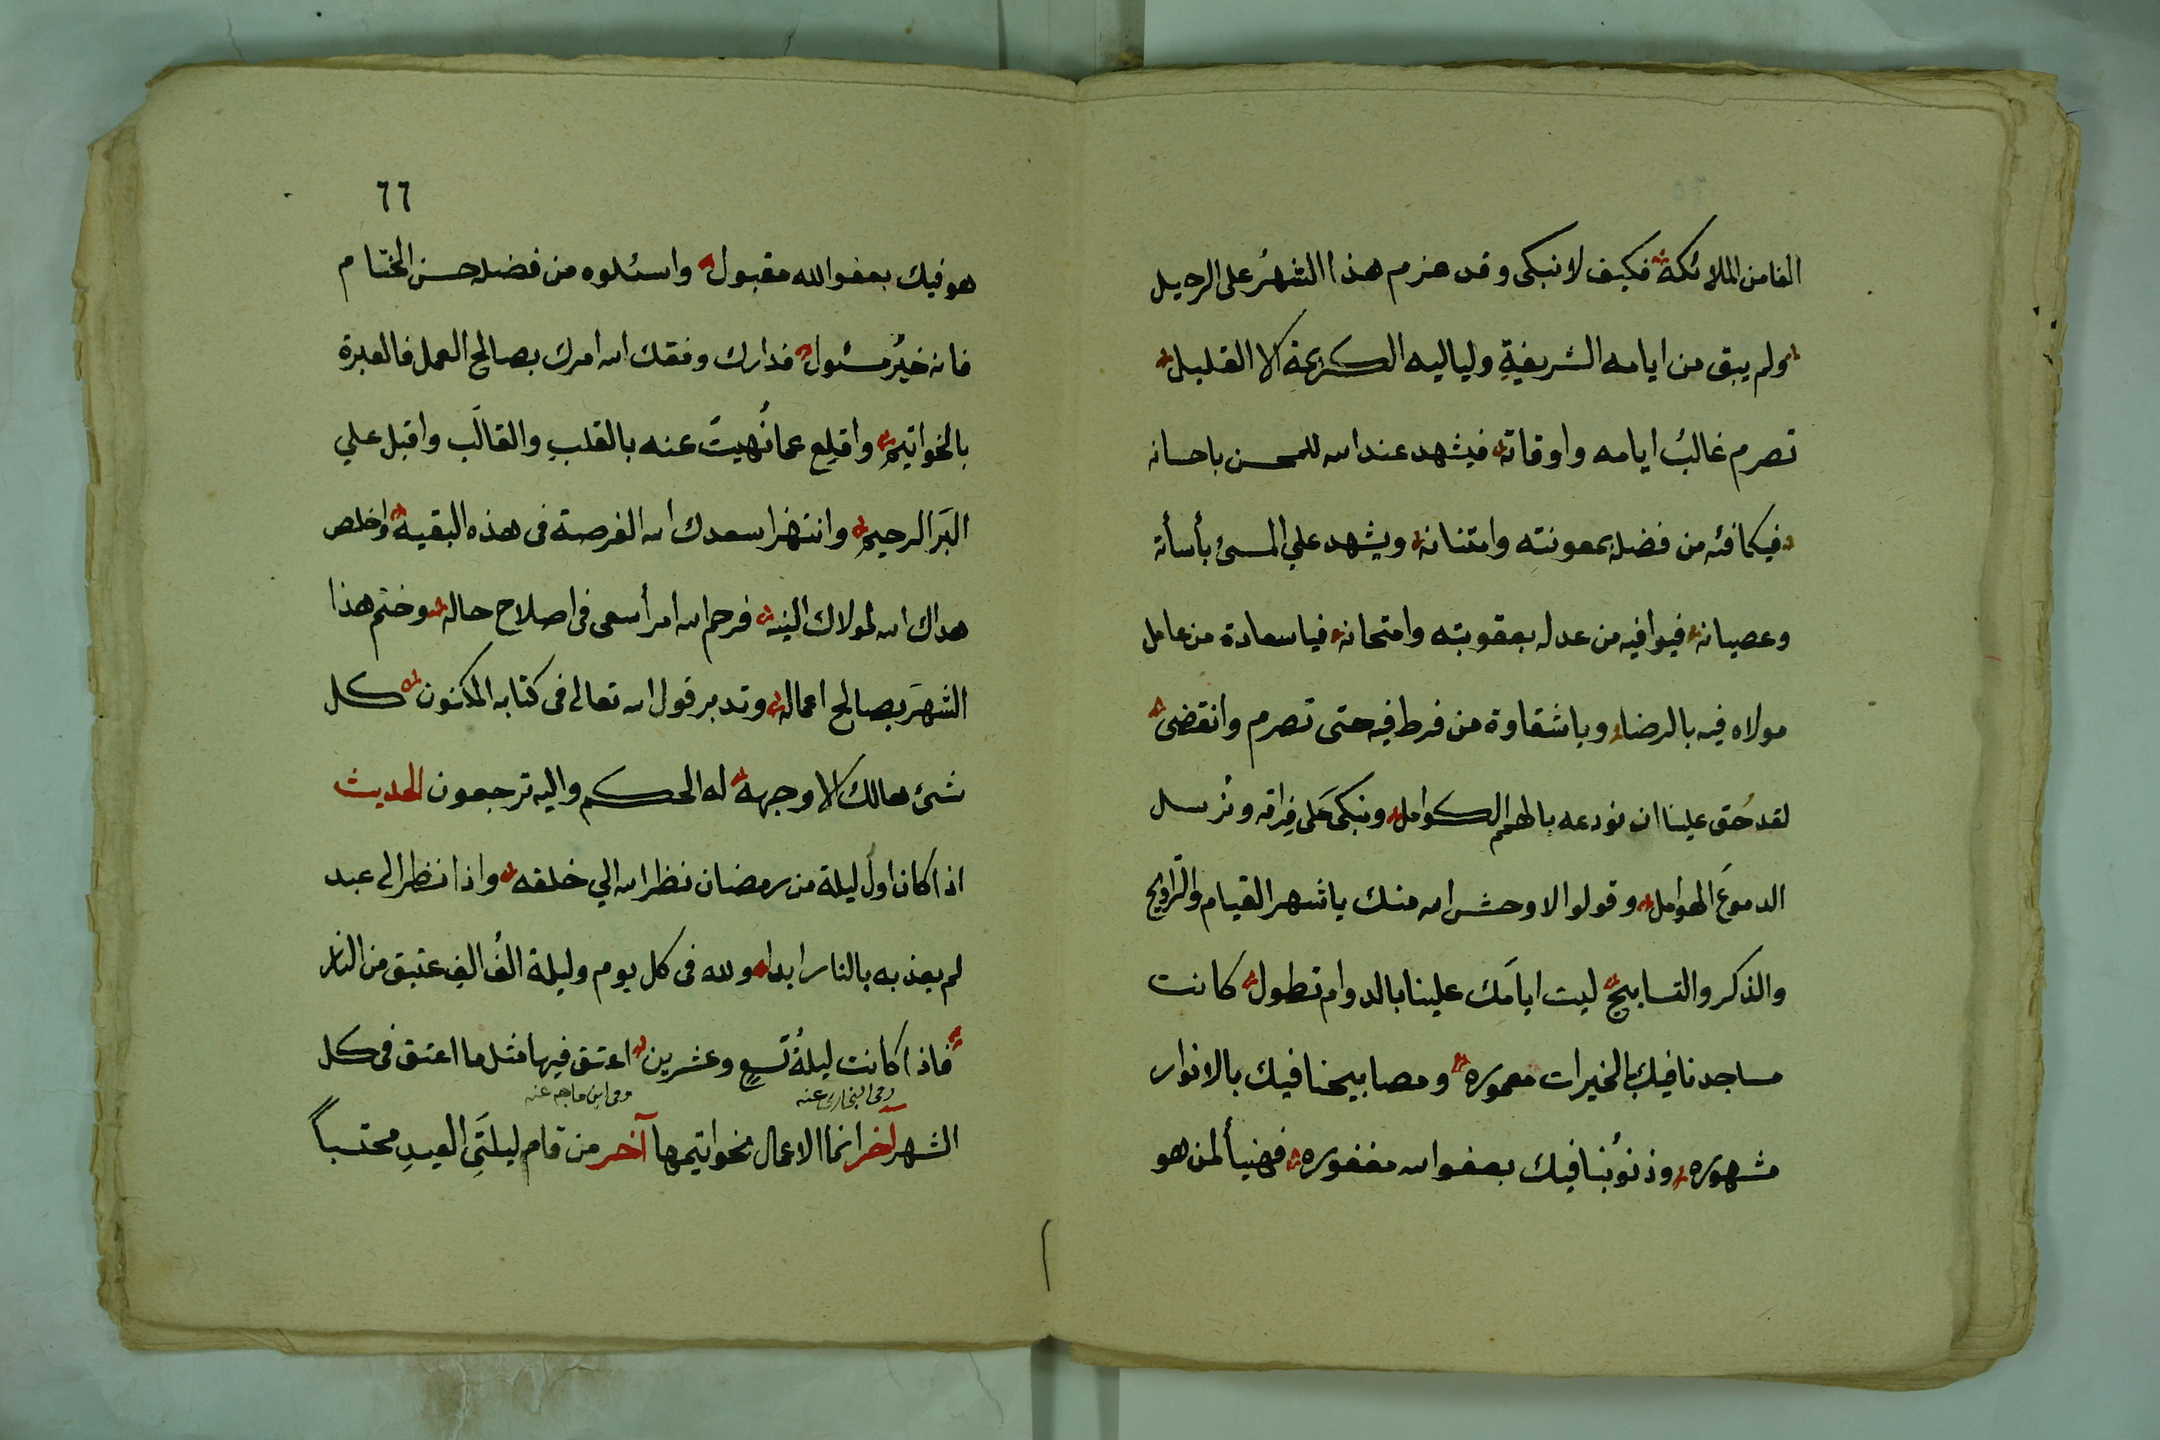 الفا من الملائكة فكيف لا نبكى وقد عزم هذا الشهرُ على الرحيل
ولم يبق من ايامه الشريفةِ ولياليه الكريمة الا القليل
تصرم غالبُ ايامه واوقاته فيشهد عند الله للمحسن باحسانه
فيكافئه من فضله بمعونته وامتنانه ويشهد علي المسئ بأسأته
وعصيانه فيوافيه من عدله بعقوبته وامتحانه فيا سعادة من عامل
مولاه فيه بالرضا ويا شقاوة من فرط فيه حتى تصرم وانقضى
لقد حُق علينا ان نودعه بالهمم الكوامل ونبكىَ على فِراقه ونُرسل
الدموعَ الهوامل وقولوا لا وحش الله منك يا شهر القيام والتراويح
والذكر والتسابيح ليت ايامَك علينا بالدوام تطول كانت
مساجدنا فيك بالخيرات معموره ومصابيحنا فيك بالانوار
مشهوره وذنوُبنا فيك بعفو الله مغفوره فهنيأ لمن هو
٦٦
هو فيك بعفو الله مقبول واسئلوه من فضله حسن الختام
فانه خيُر مسئول فدارك وفقك الله امرك بصالح العمل فالعبرة
بالخواتيم واقلِع عما نُهيتَ عنه بالقلبِ والقالَب واقبل علي
البَر الرحيم وانتهز اسعدك الله الفرصة فى هذه البقية واخلص
هداك الله لمولاك النيه فرحم الله امرأ سعى فى اصلاح حاله وختم هذا
الشهرَ بصالح اعماله وتدبر قول الله تعالى فى كتابه المكنون كل
شئ هالك الا وجهه له الحكم واليه ترجعون الحديث
اذا كان اول ليلة من رمضان نظر الله الي خلقه واذا نظر الى عبد
لم يعذبه بالنار ابدا ولله فى كل يوم وليلة الفُ الفِ عتيق من النار
فاذا كانت ليلةُ تسعٍ وعشرين اعتق فيها مثل ما اعتق فى كل
وفى البخارى عنه وفى ابن ماجه عنه
الشهر آخر انما الاعمال بخواتيمها آخر من قام ليلتَي العيدِ محتسباً